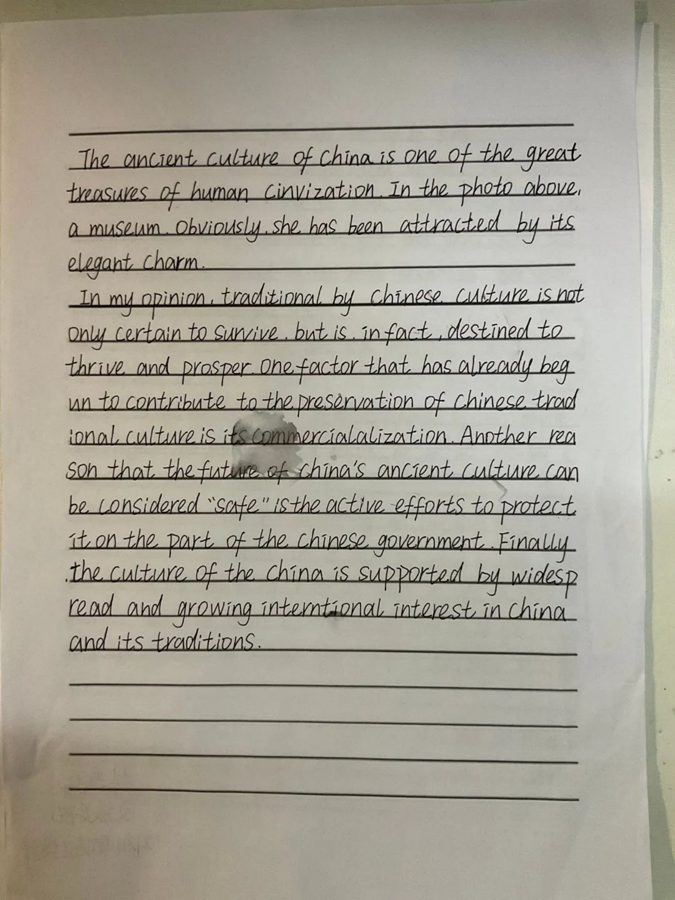 The ancient culture of China is one of the great
treasures of human cinvization. In the photo above,
a museum. Obviously, she has been attracted by its
elegant charm.
In my opinion, traditional by Chinese culture is not
only certain to survive, but is, in fact, destined to
thrive and prosper. One factor that has already beg
un to contribute to the preservation of Chinese trad
ional culture is its commercialalization. Another rea
son that the future of china's ancient culture can
be considered "safe" is the active efforts to protect
it on the part of the Chinese government. Finally
, the culture of the China is supported by widesp
read and growing interntional interest in China
and its traditions.